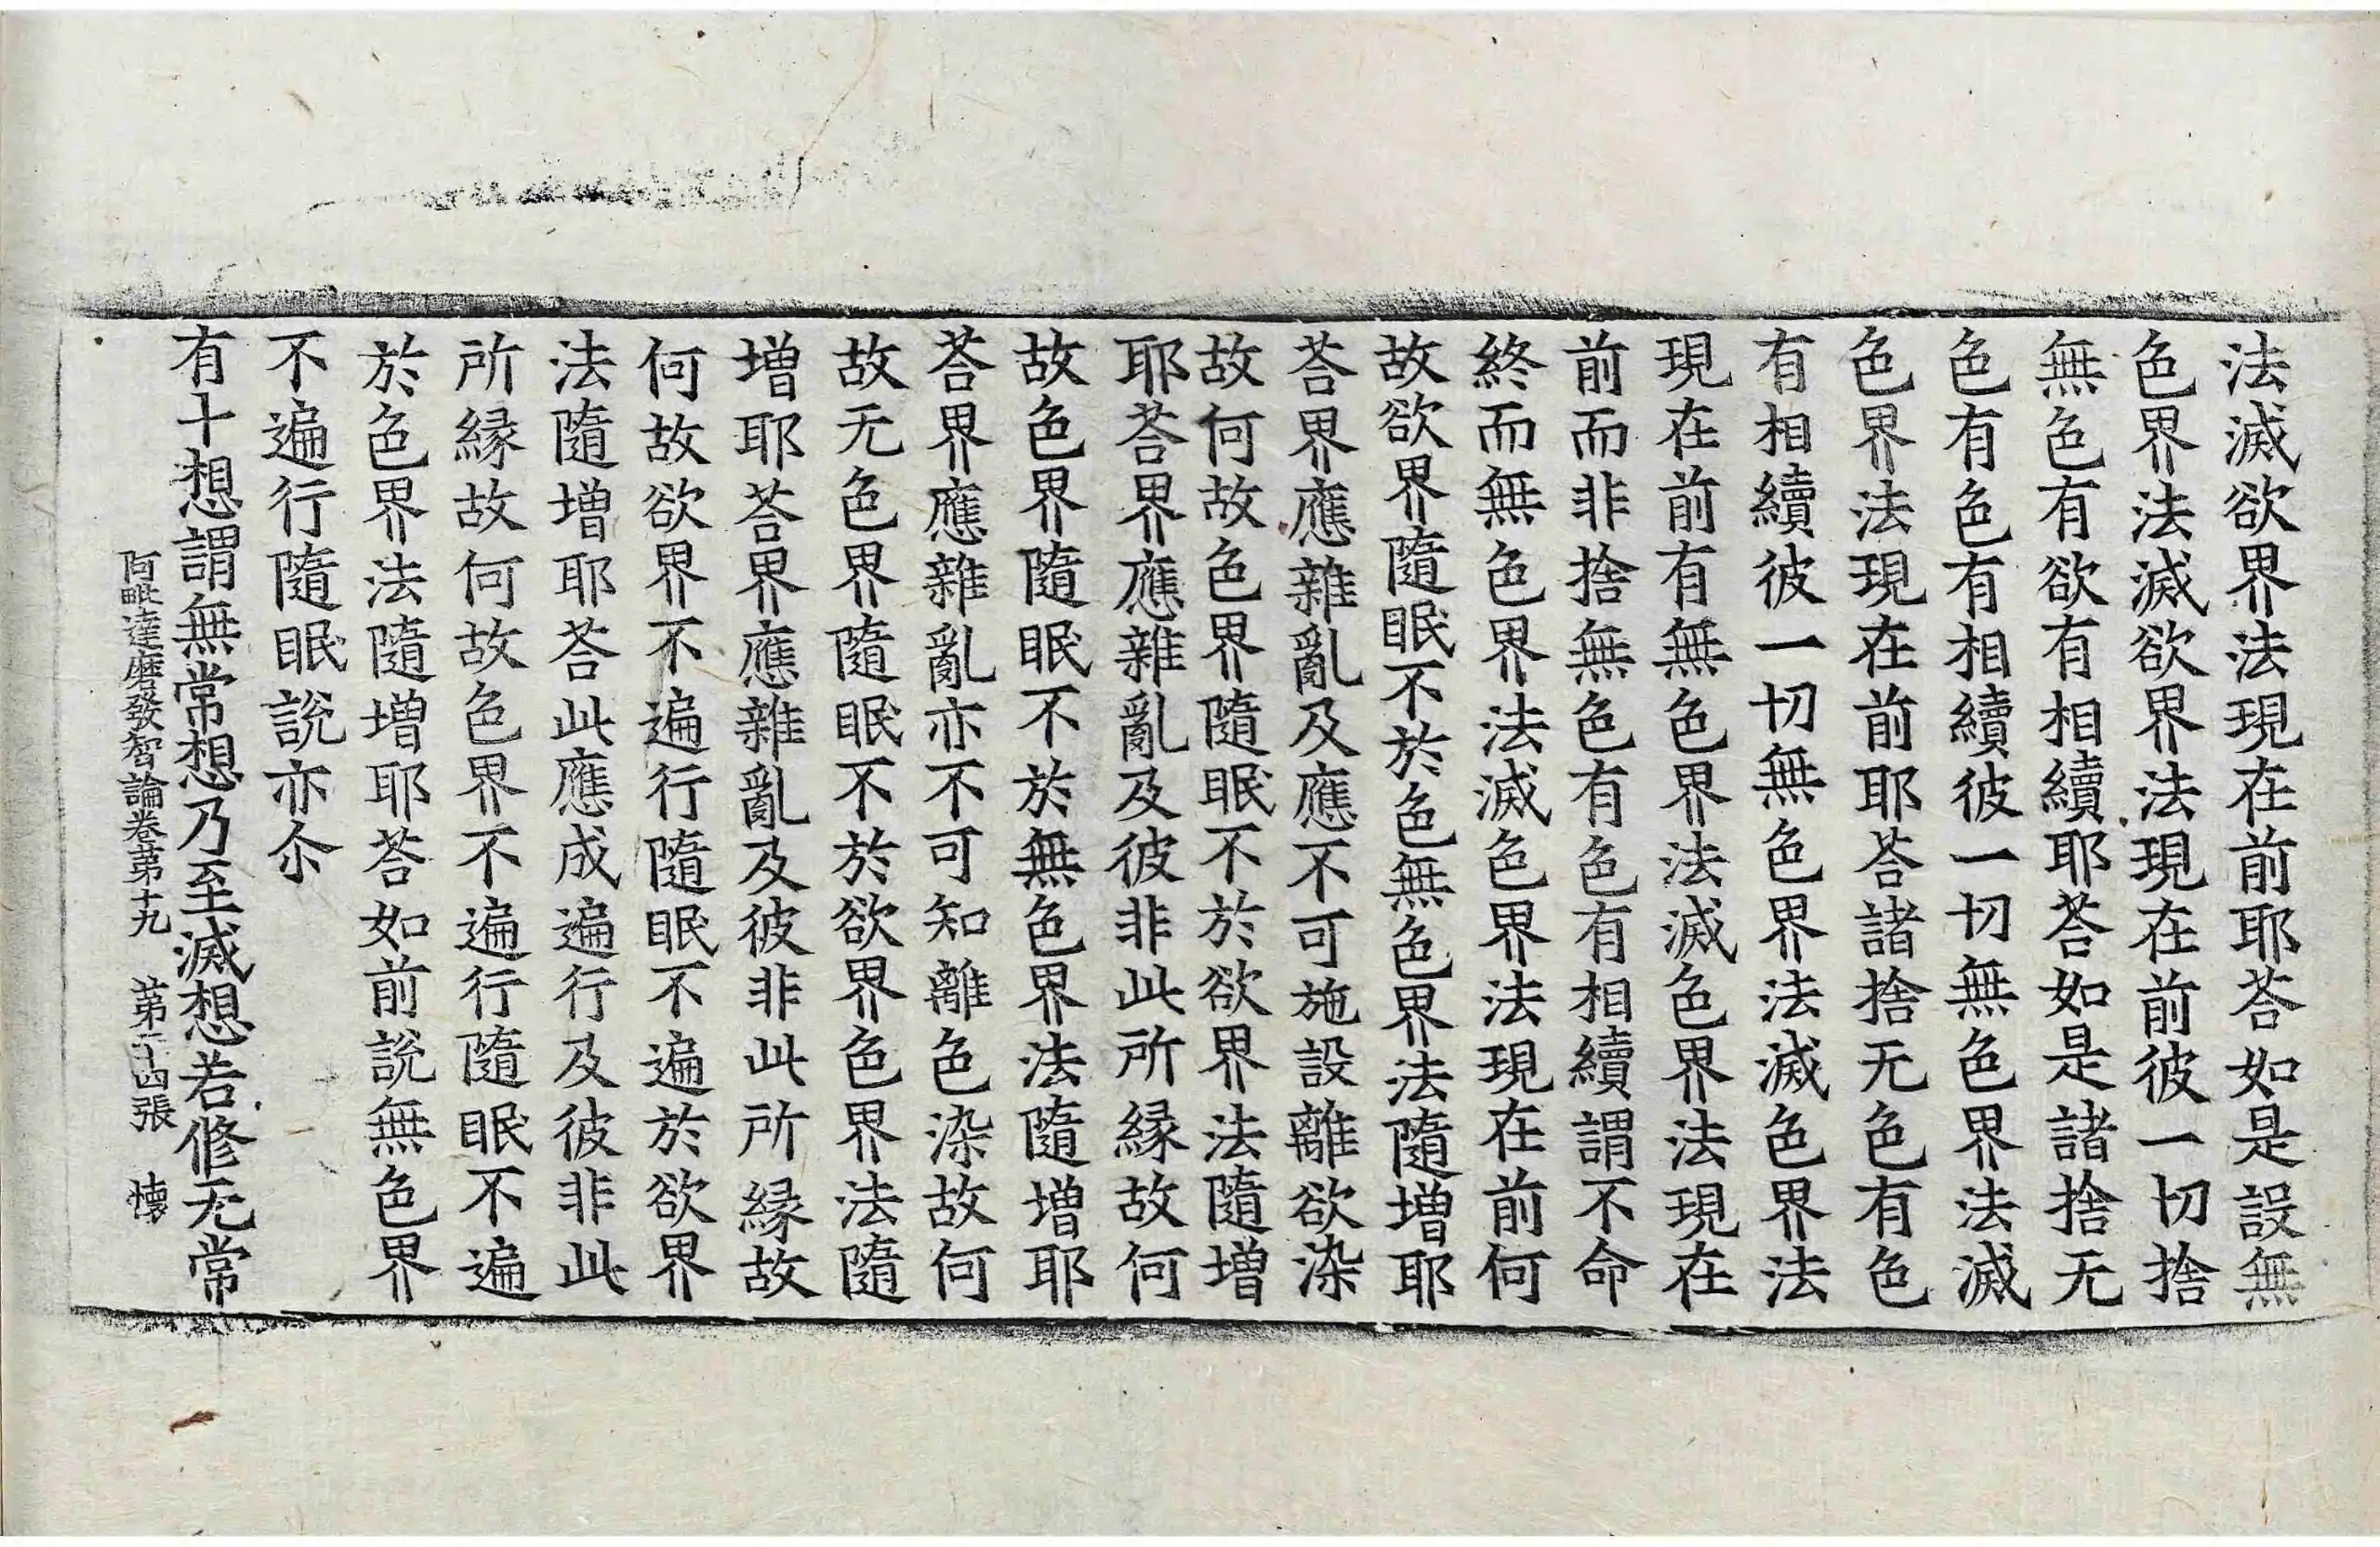 法滅欲界法現在前耶荅如是設無
色界法滅欲界法現在前彼一切捨
無色有欲有相續耶荅如是諸捨无
色有色有相續彼一切無色界法滅
色界法現在前耶荅諸捨无色有色
有相續彼一切無色界法滅色界法
現在前有無色界法滅色界法現在
前而非捨無色有色有相續謂不命
終而無色界法滅色界法現在前何
故欲界隨眠不於色無色界法隨增耶
荅界應雜亂及應不可施設離欲染
故何故色界隨眠不於欲界法隨增
耶荅界應雜亂及彼非此所緣故何
故色界隨眠不於無色界法隨增耶
荅界應雜亂亦不可知離色染故何
故无色界隨眠不於欲界色界法隨
增耶荅界應雜亂及彼非此所緣故
何故欲界不遍行隨眠不遍於欲界
法隨增耶荅此應成遍行及彼非此
所緣故何故色界不遍行隨眠不遍
於色界法隨增耶荅如前說無色界
不遍行隨眠說亦尒
有十想謂無常想乃至滅想若修无常
阿毗達磨發智論卷第十九 第二十四張 懐